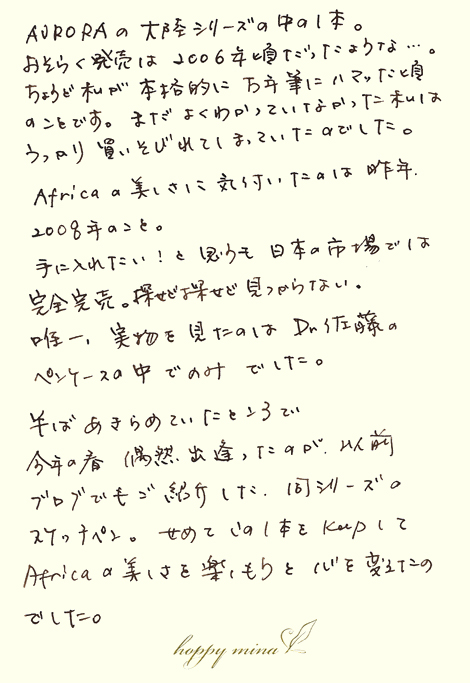 AURORAの大陸シリーズの中の1本。
おそらく発売は2006年頃だったような…。
ちょうど私が本格的に万年筆にハマった頃
のことです。まだよくわかっていなかった私は
うっかり買いそびれてしまっていたのでした。
Africaの美しさに気付いたのは昨年.
2008年のこと。
手に入れたい！と思うも日本の市場では
完全完売。探せど探せど見つからない。
唯一、実物を見たのはDr.佐藤の
ペンケースの中でのみでした。
半ばあきらめていたところで
今年の春 偶然出逢ったのが、以前
ブログでもご紹介した、同シリーズの
スケッチペン。せめてこの1本をKeepして
Africaの美しさを楽しもうと心を変えたの
でした。
happy mina